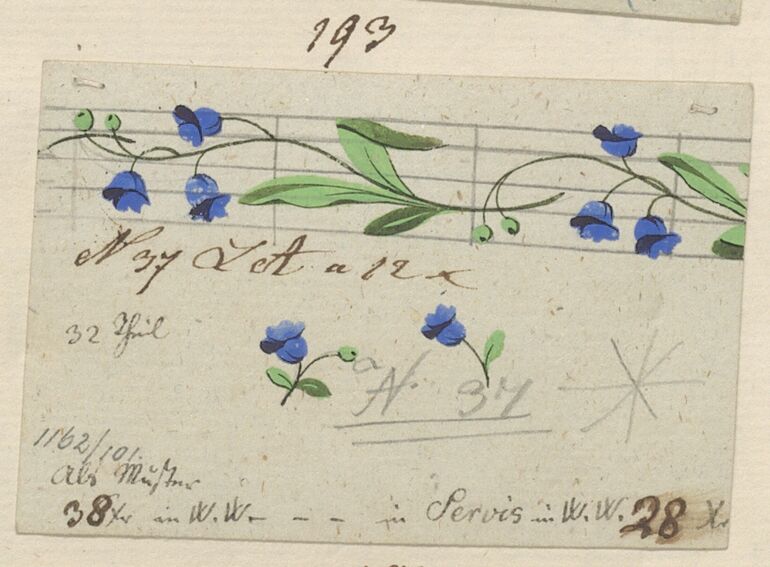 193
N 37 Lit A a 12 x
32 Theil
a N. 37
1162/101.
Als Muster
38 Xr in W.W. - - - in Servis in W.W. 28 Xr